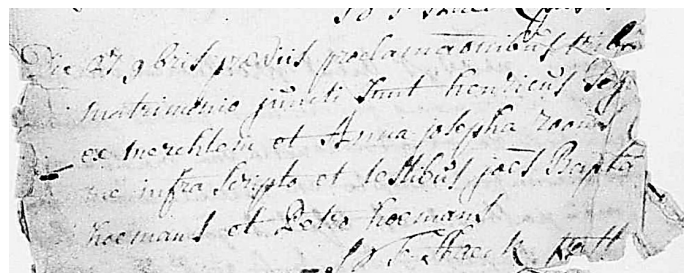 Die 27 9bris praeviis proclamaõnibus tribus
matrimonio juncti sunt henricus
ex merchtem et Anna josepha roows
me infra scripto et testibus joës Bapta
hoemans et Petro hoemans